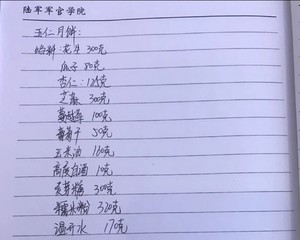 陆军军官学院
五仁月饼:
馅料:花生 300克
瓜子 80克
杏仁:125克
芝麻 300克
蔓越莓 100克
葡萄干 50克
玉米油 130克
高度白酒 10克
麦芽糖 300克
糯米粉 320克
温开水 170克